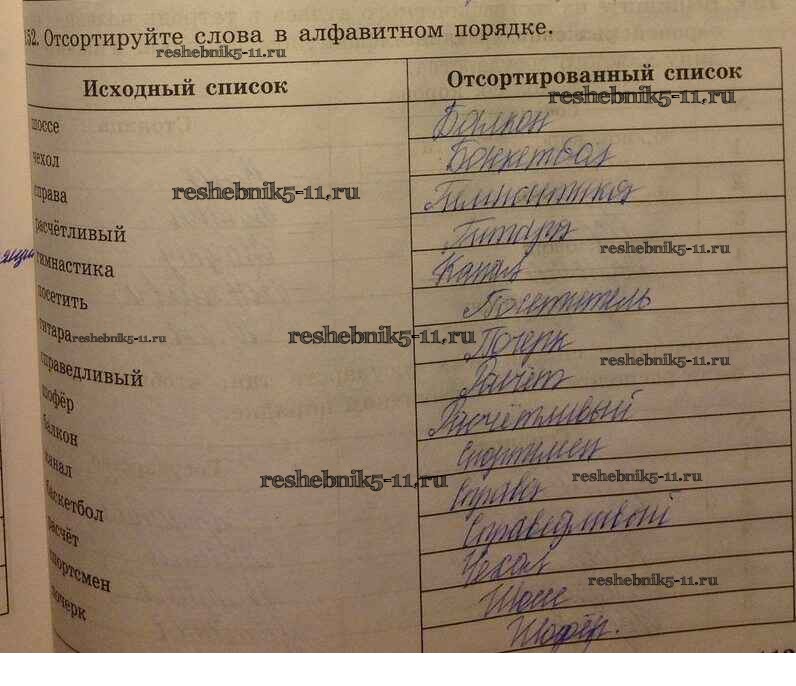 52. Отсортируйте слова в алфавитном порядке.
reshebnik5-11.ru
Исходный список
Отсортированный список
reshebnik5-11.ru
шоссе
чехол
справа
reshebnik5-11.ru
расчётливый
гимнастика
посетить
гитара
reshebnik5-11.ru
справедливый
шофёр
балкон
канал
баскетбол
расчёт
спортсмен
почерк
Балкон
Баскетбол
Гимнастика
Гитара
reshebnik5-11.ru
Канал
Посетитель
reshebnik5-11.ru
Почерк
reshebnik5-11.ru
Расчёт
Расчётливый
Спортсмен
reshebnik5-11.ru
reshebnik5-11.ru
Справа
Справедливый
Чехол
reshebnik5-11.ru
Шоссе
Шофёр.